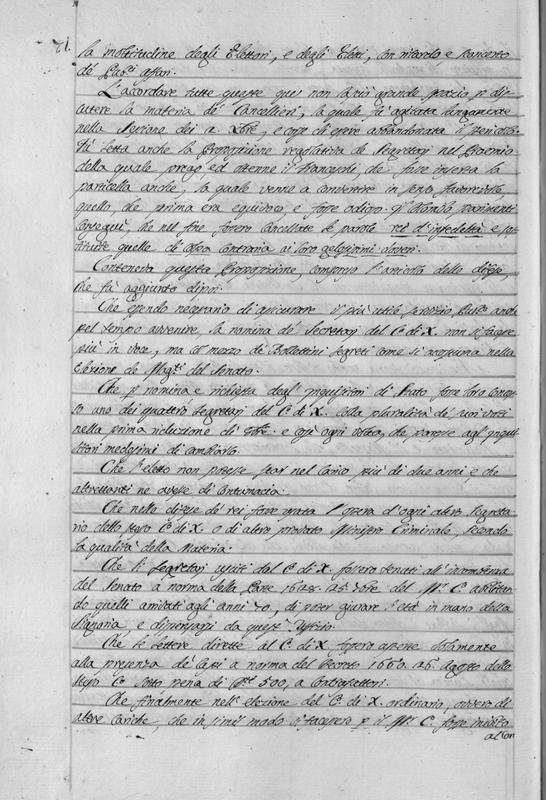 71.
la moltitudine degli Elettori, e degli Eletti, con ritardo, e sconcerto
de' Pub.ci affari.
L'accordare tutte queste cose non fu più grande grazia p dis
cutere la materia de' Cancellieri, la quale fu agitata lungamente
nella Sessione dei 2. Xbre, e
Fu letta anche la Proposizione regolativa de' Segretarj nel Proemio
della quale pregò ed ottenne il Franceschi, che fosse inserta la
particella anche, la quale venne a convertire in senso favorevole
quello, che prima era equivoco, e forse odioso. Il Colombo parimenti
conseguì, che nel fine fossero cancellate le parole rei d'infedeltà e sos
tituite quelle di cosa contraria ai loro gelosissimi doveri.
Conteneva questa Proposizione, compreso l'articolo delle Ziffre,
che fu aggiunto dipoi.
Che essendo necessario di assicurare il più utile servizio Pub.co anche
pel tempo avvenire, la nomina de' Secretarj del C. di X. non si facesse
più in voce, ma col mezzo di Bollettini segreti come si accostuma nella
Elezione de' Mag.ti del Senato.
Che p nomina e richiesta degl'Inquisitori di Stato fosse loro conces
so uno dei quattro Segretarj del C. di X. colla pluralità de' suoi voti
nella prima riduzione di Xbre. e così ogni volta, che paresse agl'Inqui
sitori medesimi di cambiarlo.
Che l'eletto non potesse star nel carico più di due anni, e che
altrettanti ne avesse di contumacia.
Che nello dizze de' rei fosse usata l'opera d'ogni altro Segreta
rio dello stesso C.o di X. o di altro provato Ministro Criminale, secondo
la qualità della Materia.
Che li Segretarj usciti dal C. di X. fossero tenuti all'incombenza
del Senato a norma della Parte 1628. 25. 7bre. del M.r C. abilitan
do quelli arrivati agli anni 70, di poter giurare l'età in mano della
Signoria, e dispensarsi da quest'Uffizio.
Che le lettere dirette al C. di X. fossero aperte solamente
alla presenza de' Capi a norma del Decreto 1660. 26. Agosto dello
stesso C.o sotto pena di D.ti 500, a contrafattori.
Che finalmente nell'elezione del C. di X. ordinario, ovvero di
altre cariche, che in simil modo si facessero p il M.r C. fosse inibito
al Con